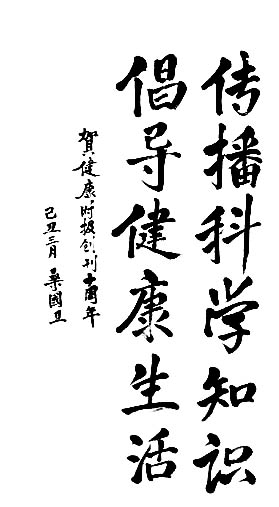 传播科学知识
倡导健康生活
賀健康时报创刊十周年
己丑三月 桑國卫